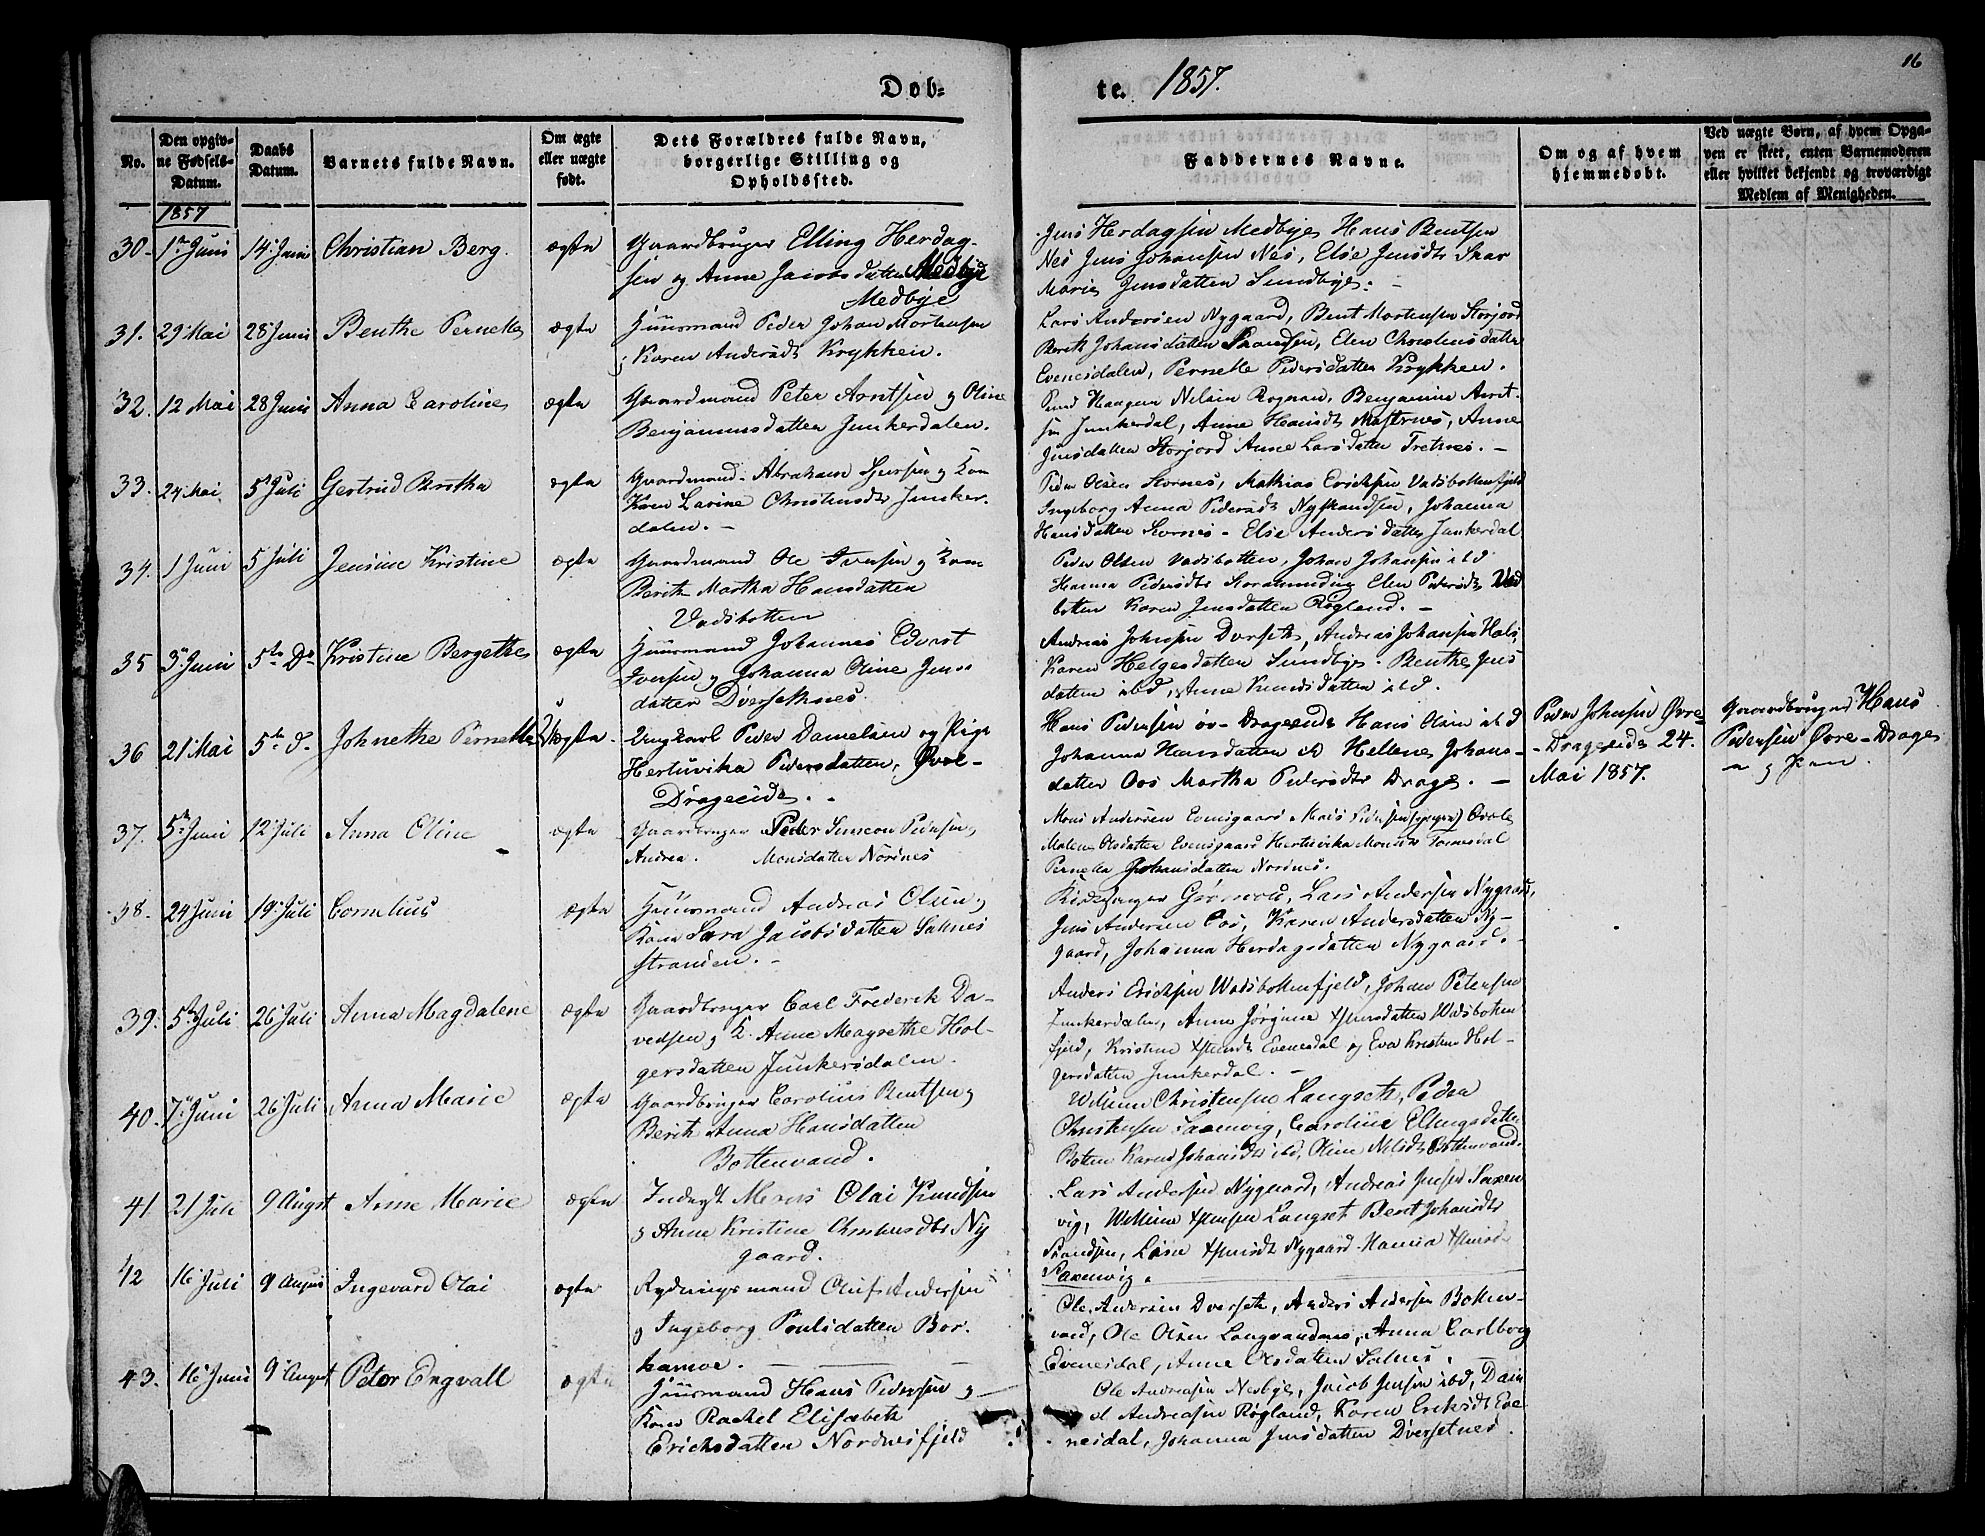 16
Døb-
te. 1857.
No.
Den opgiv-
ne Fødsels-
Datum.
Daabs
Datum.
Barnets fulde Navn.
Om ægte
eller uægte
født.
Dets Forældres fulde Navn,
borgerlige Stilling og
Opholdssted.
Faddernes Navne.
Om og af hvem
hjemmedøbt.
Ved uægte Børn, af hvem Opga-
ven er skeet, enten Barnemoderen
eller hvilket bekjendt og troværdigt
Medlem af Menigheden.
1857
30. 1ste Juni 14 Juni Christian Berg. ægte Gaardbruger Elling Herdag-
sen og Anne Jacobsdatter Medbye
Medbye
Jens Herdagsen Medbye Hans Bentsen
Nes Jens Johansen Nes, Else Jensdtr
Marie Jensdatter Sundbye.
31. 29 Mai 28 Juni Benthe Pernelle ægte Huusmand Peder Johan Mortensen
og Karen Andersdtr Krykken.
Lars Andersen Nygaard, Bent Mortensen Storjord
Berith Johansdatter Elen Christensdatter
Evenesdalen, Pernelle Pedersdatter Krykken.
32. 12 Mai 28 Juni Anna Caroline ægte Gaardmand Peter Arntsen og Oline
Benjaminsdatter Junkerdalen.
Nilsen Rognan, Benjamin Arnt-
sen Junkerdal, Anne Hansdtr Anne
Jensdatter Storjord Anne Larsdatter
33. 24 Mai 5 Juli Gertrud Birtha ægte Gaardmand Abraham og Kone
Karen Lavine Christensdtr Junker-
dalen.
Peder Olsen Stornes, Mathias Erichsen Vadsbottenfjeld
Ingeborg Anna Pedersdtr Johanna
Hansdatter Stornes - Else Andersdatter Junkerdal
34. 1 Juni 5 Juli Jensine Kristine ægte Gaardmand Ole Iversen og Kone
Berith Martha Hansdatter
Vadsbotten
Peder Olsen Vadsbotten, Johan Johansen ibd
Hanna Pedersdtr Elen Pedersdtr Vads
botten Karen Jensdatter Røgland.
35 3 Juni 5te Do Kristine Bergethe ægte Huusmand Johannes Edvart
Iversen og Johanna Oline Jens-
datter Dversetnes.
Andreas Johnsen Dverseth, Andreas Johansen
Karen Helgesdatter Sundbye. Benthe Jens
datter ibd, Anne Knudsdatter ibd.
36 21 Mai 5te d. Johnethe Pernelle Uægte. Ungkarl Peder Danielsen og Pige
Hertuvika Pedersdatter, Øvre-
Drageeide.
Hans Pedersen øv- Drageeide Hans Olsen ibd
Johanna Hansdatter ib Hellene Johans-
datter Oos Martha Pedersdtr Drage.
Peder Johnsen Øvre-
Drageeide 24.
Mai 1857.
Gaardbruger Hans
Pedersen Øvre-Drage
37. 5 Juni 12 Juli Anna Oline ægte Gaardbruger Peder Simeon Pedersen,
Andrea. Monsdatter Nordnes
Mons Andersen Evensgaard Mads Pedersen
Malene Olsdatter Evensgaard Hertuvika Monsdtr
Pernelle Johansdatter Nordnes.
38. 24 Juni 19 Juli Cornelius ægte Huusmand Andreas Olsen og
Kone Sara Jacobsdatter Saltnes
stranden.
Kirkesanger Lars Andersen Nygaard,
Jens Andersen Oos, Karen Andersdatter Ny-
gaard, Johanna Herdagsdatter Nygaard.
39. 5te Juli 26 Juli Anna Magdalene ægte Gaardbruger Carl Frederik Da-
vedsen og K. Anne Magrethe Hol-
gersdatter Junkersdalen.
Anders Erichsen Wadsbottenfjeld, Johan Petersen
Junkerdalen, Anne Jørgine Wadsbotten
fjeld, Kristine Evenesdal og Eva Kristine Hol-
gersdatter Junkerdal.
40. 7 Juni 26 Juli Anna Marie ægte Gaardbruger Carolius Bentsen og
Berith Anna Hansdatter
Bottenvand.
Wilhum Christensen Langseth, Peder
Christensen Saxenvig, Caroline Ellingsdatter
Botten Karen Johansdtr ibd, Oline Nilsdtr Bottenvand
41. 21 Juli 9 August Anne Marie ægte Inderst Olai Knudsen
og Anne Kristine Christensdtr Ny
gaard.
Lars Andersen Nygaard, Andreas Jensen Saxen
vig, Wilhum Langset Berit Johansdtr
Nygaard Hanna
Saxenvig.
42 16 Juli 9 August Ingevard Olai ægte Rydningsmand Oluf Andersen
og Ingeborg Poulsdatter Bor-
kamoe.
Ole Andersen Dverseth, Anders Andersen Botten-
vand, Ole Olsen Langvandnes, Anna Carlborg
Evenesdal, Anne Olsdatter Saltnes.
43. 16 Juni 9 August Peter Engvall ægte Huusmand Hans Pedersen og
Kone Rachel Elisabeth
Erichsdatter Nordnesfjeld
Ole Andreasen Nesbye, Jacob Jensen ibd, Dani
el Andreasen Røgland, Karen Eriksdtr Eve
nesdal, Johanna Jensdatter Dversetnes.